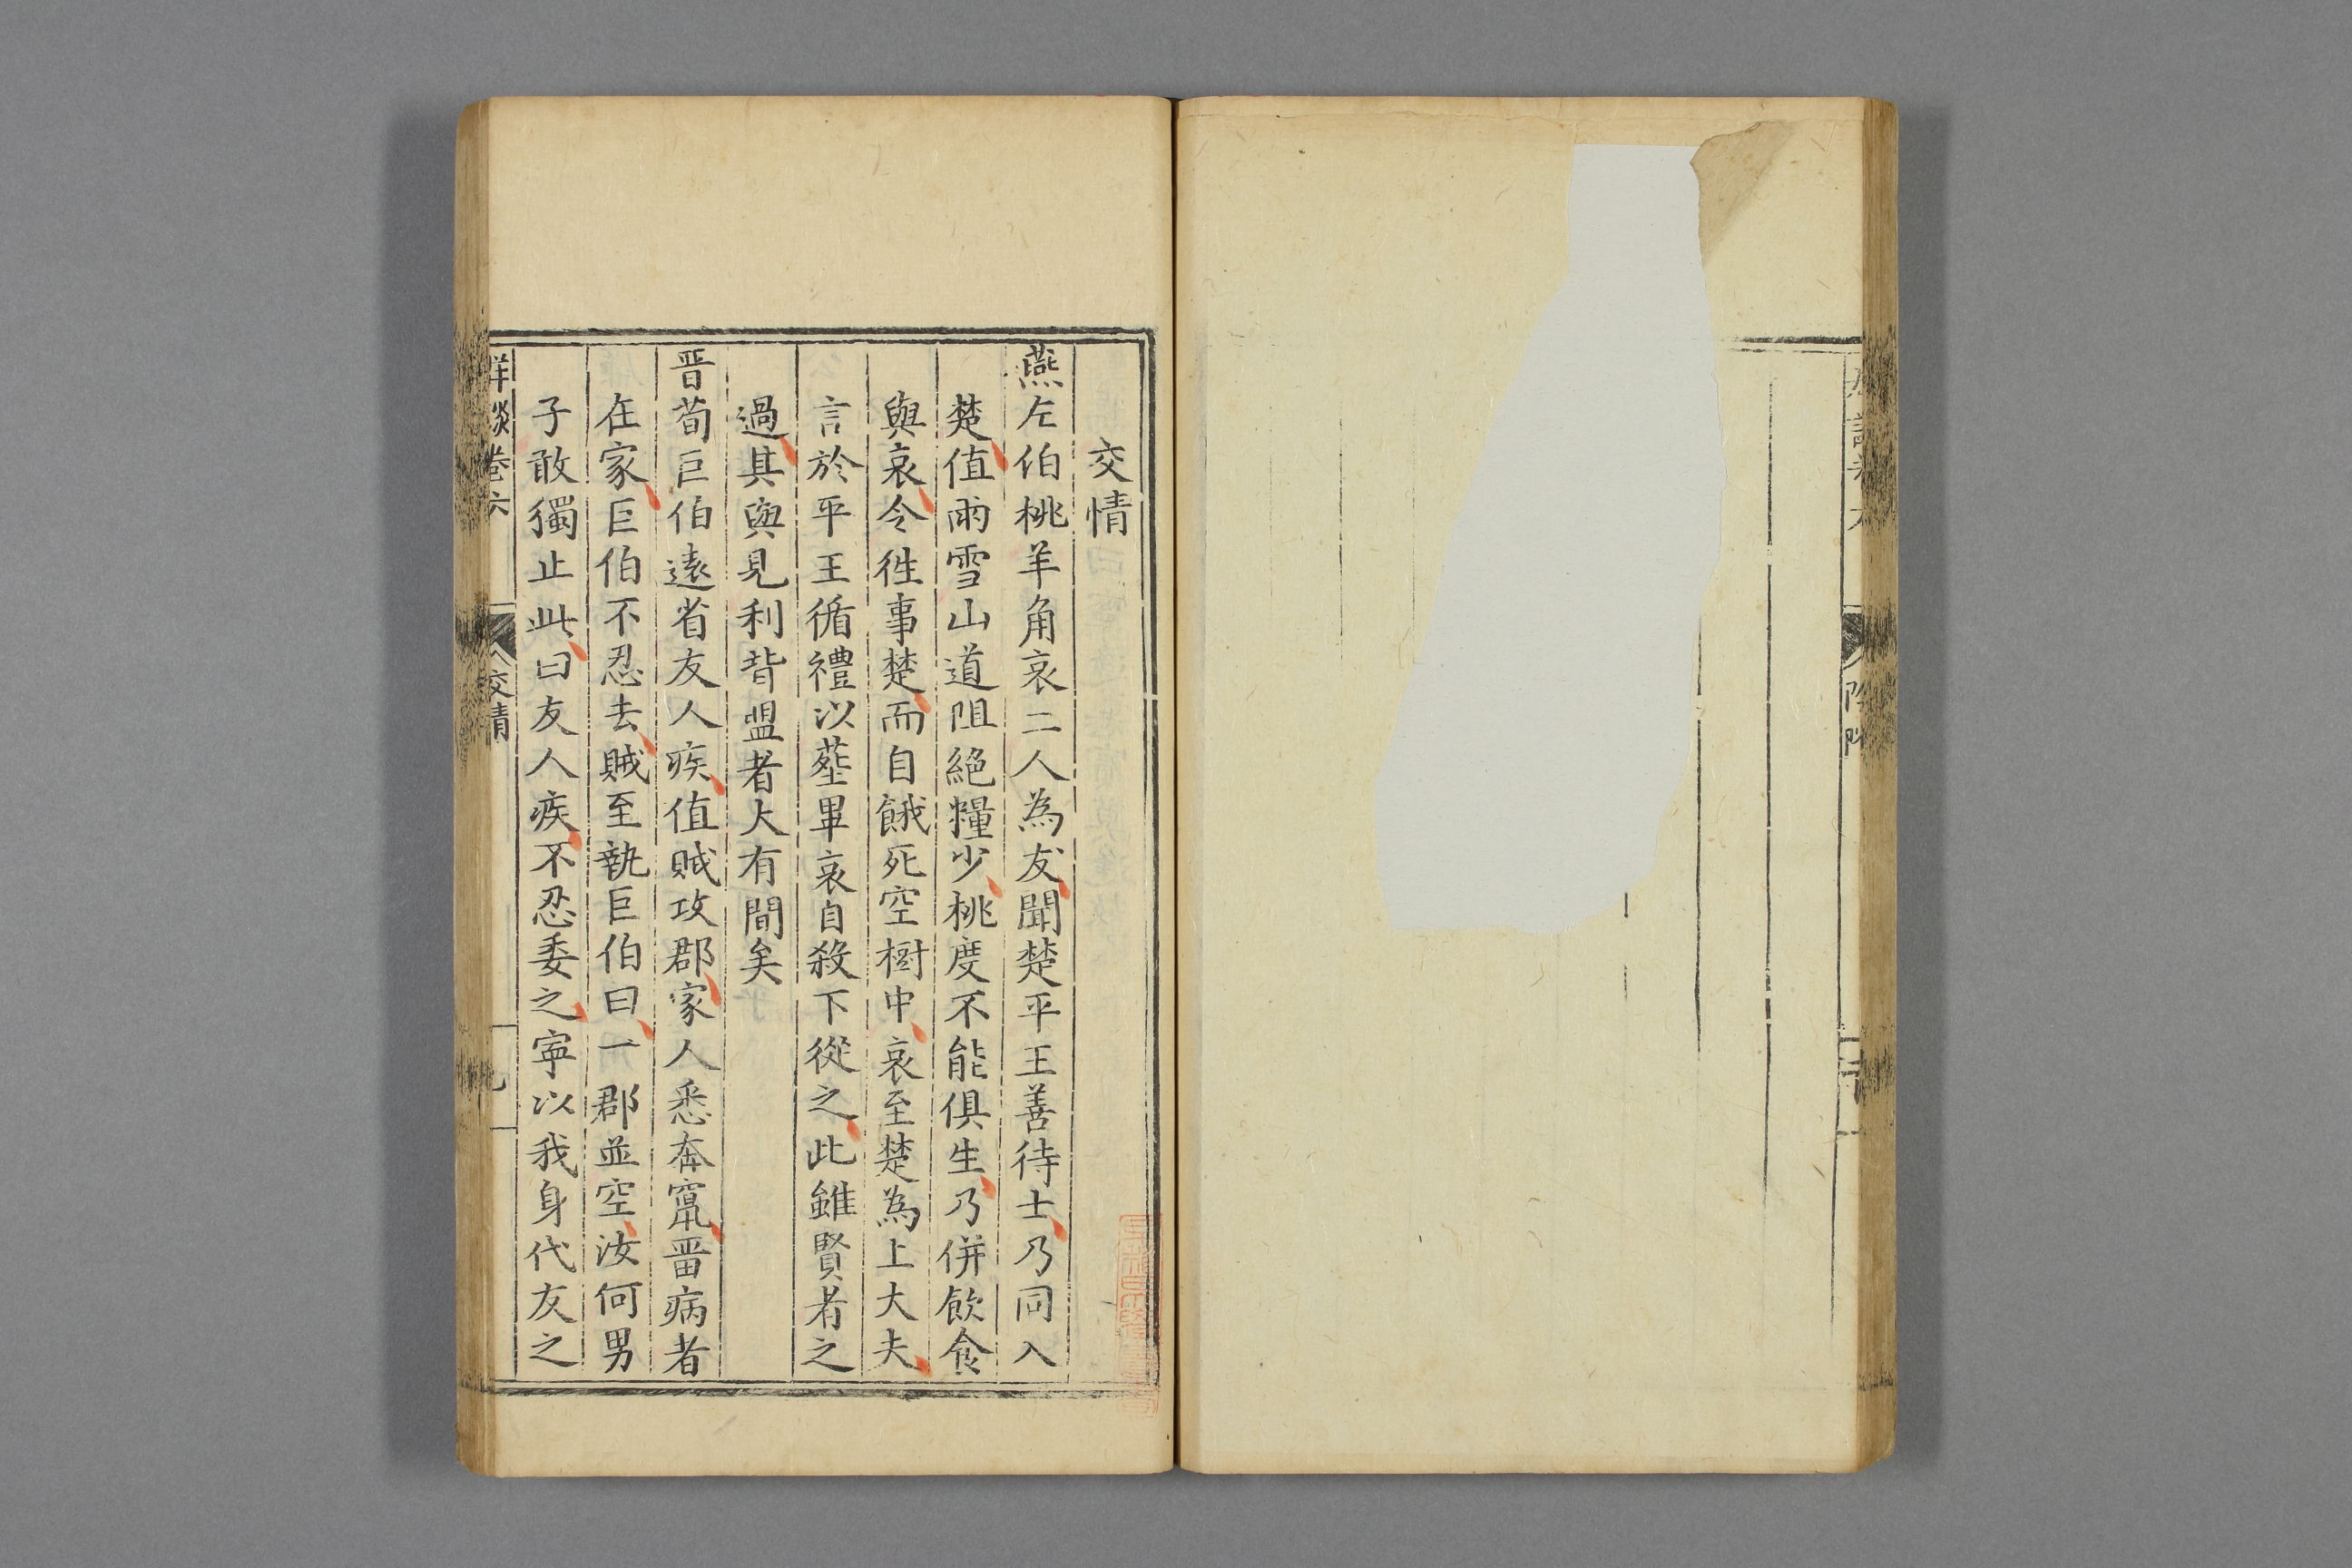 交情
燕左伯桃羊角哀二人為友聞楚平王善待士乃同入
楚值雨雪山道阻絕糧少桃度不能俱生乃併飲食
與哀令徃事楚而自餓死空樹中哀至楚為上大夫
言於平王循禮以塟畢哀自殺下從之此雖賢者之
過其與見利背盟者大有間矣
晋荀巨伯遠省友人疾值賊攻郡家人悉奔竄畱病者
在家巨伯不忍去賊至執巨伯曰一郡並空汝何男
子敢獨止此曰友人疾不忍委之寜以我身代友之
卷六
交情